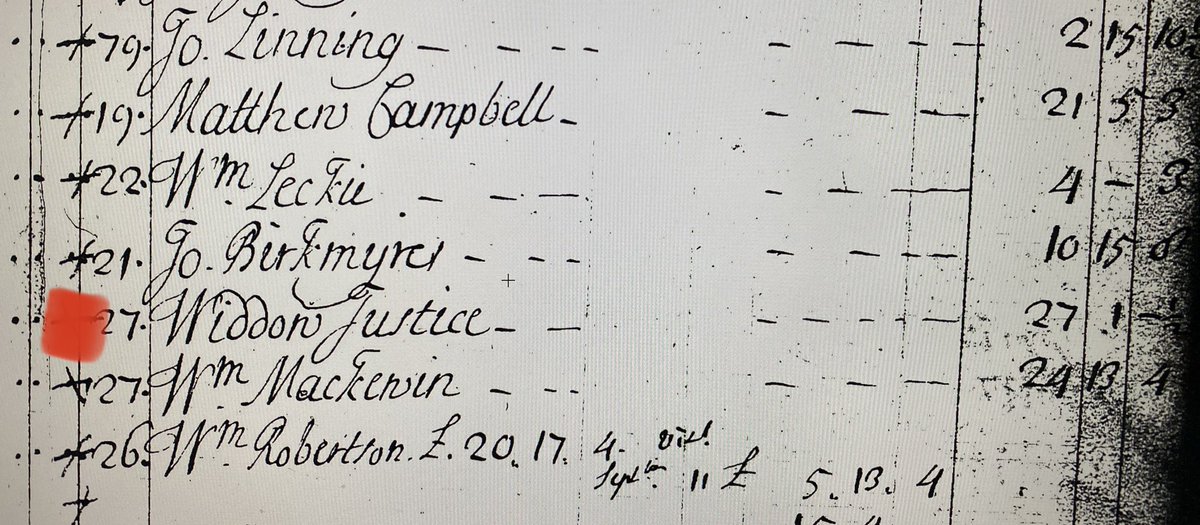 79. Jo. Linning — — - - — — — — 2 15 10
19. Matthew Campbell - — — — 21 5 3
22. Wm. Leckie - - — - - — 4 - 3
21. Jo. Birkmyre - - - - - - - 10 15
27. Widdow Justice - — - - - - - 27 1
27. Wm. Mackewin - - - - - - 24 13 4
26. Wm. Robertson. £. 20. 17. 4. vizt
Septr. 11 £ 5. 13. 4